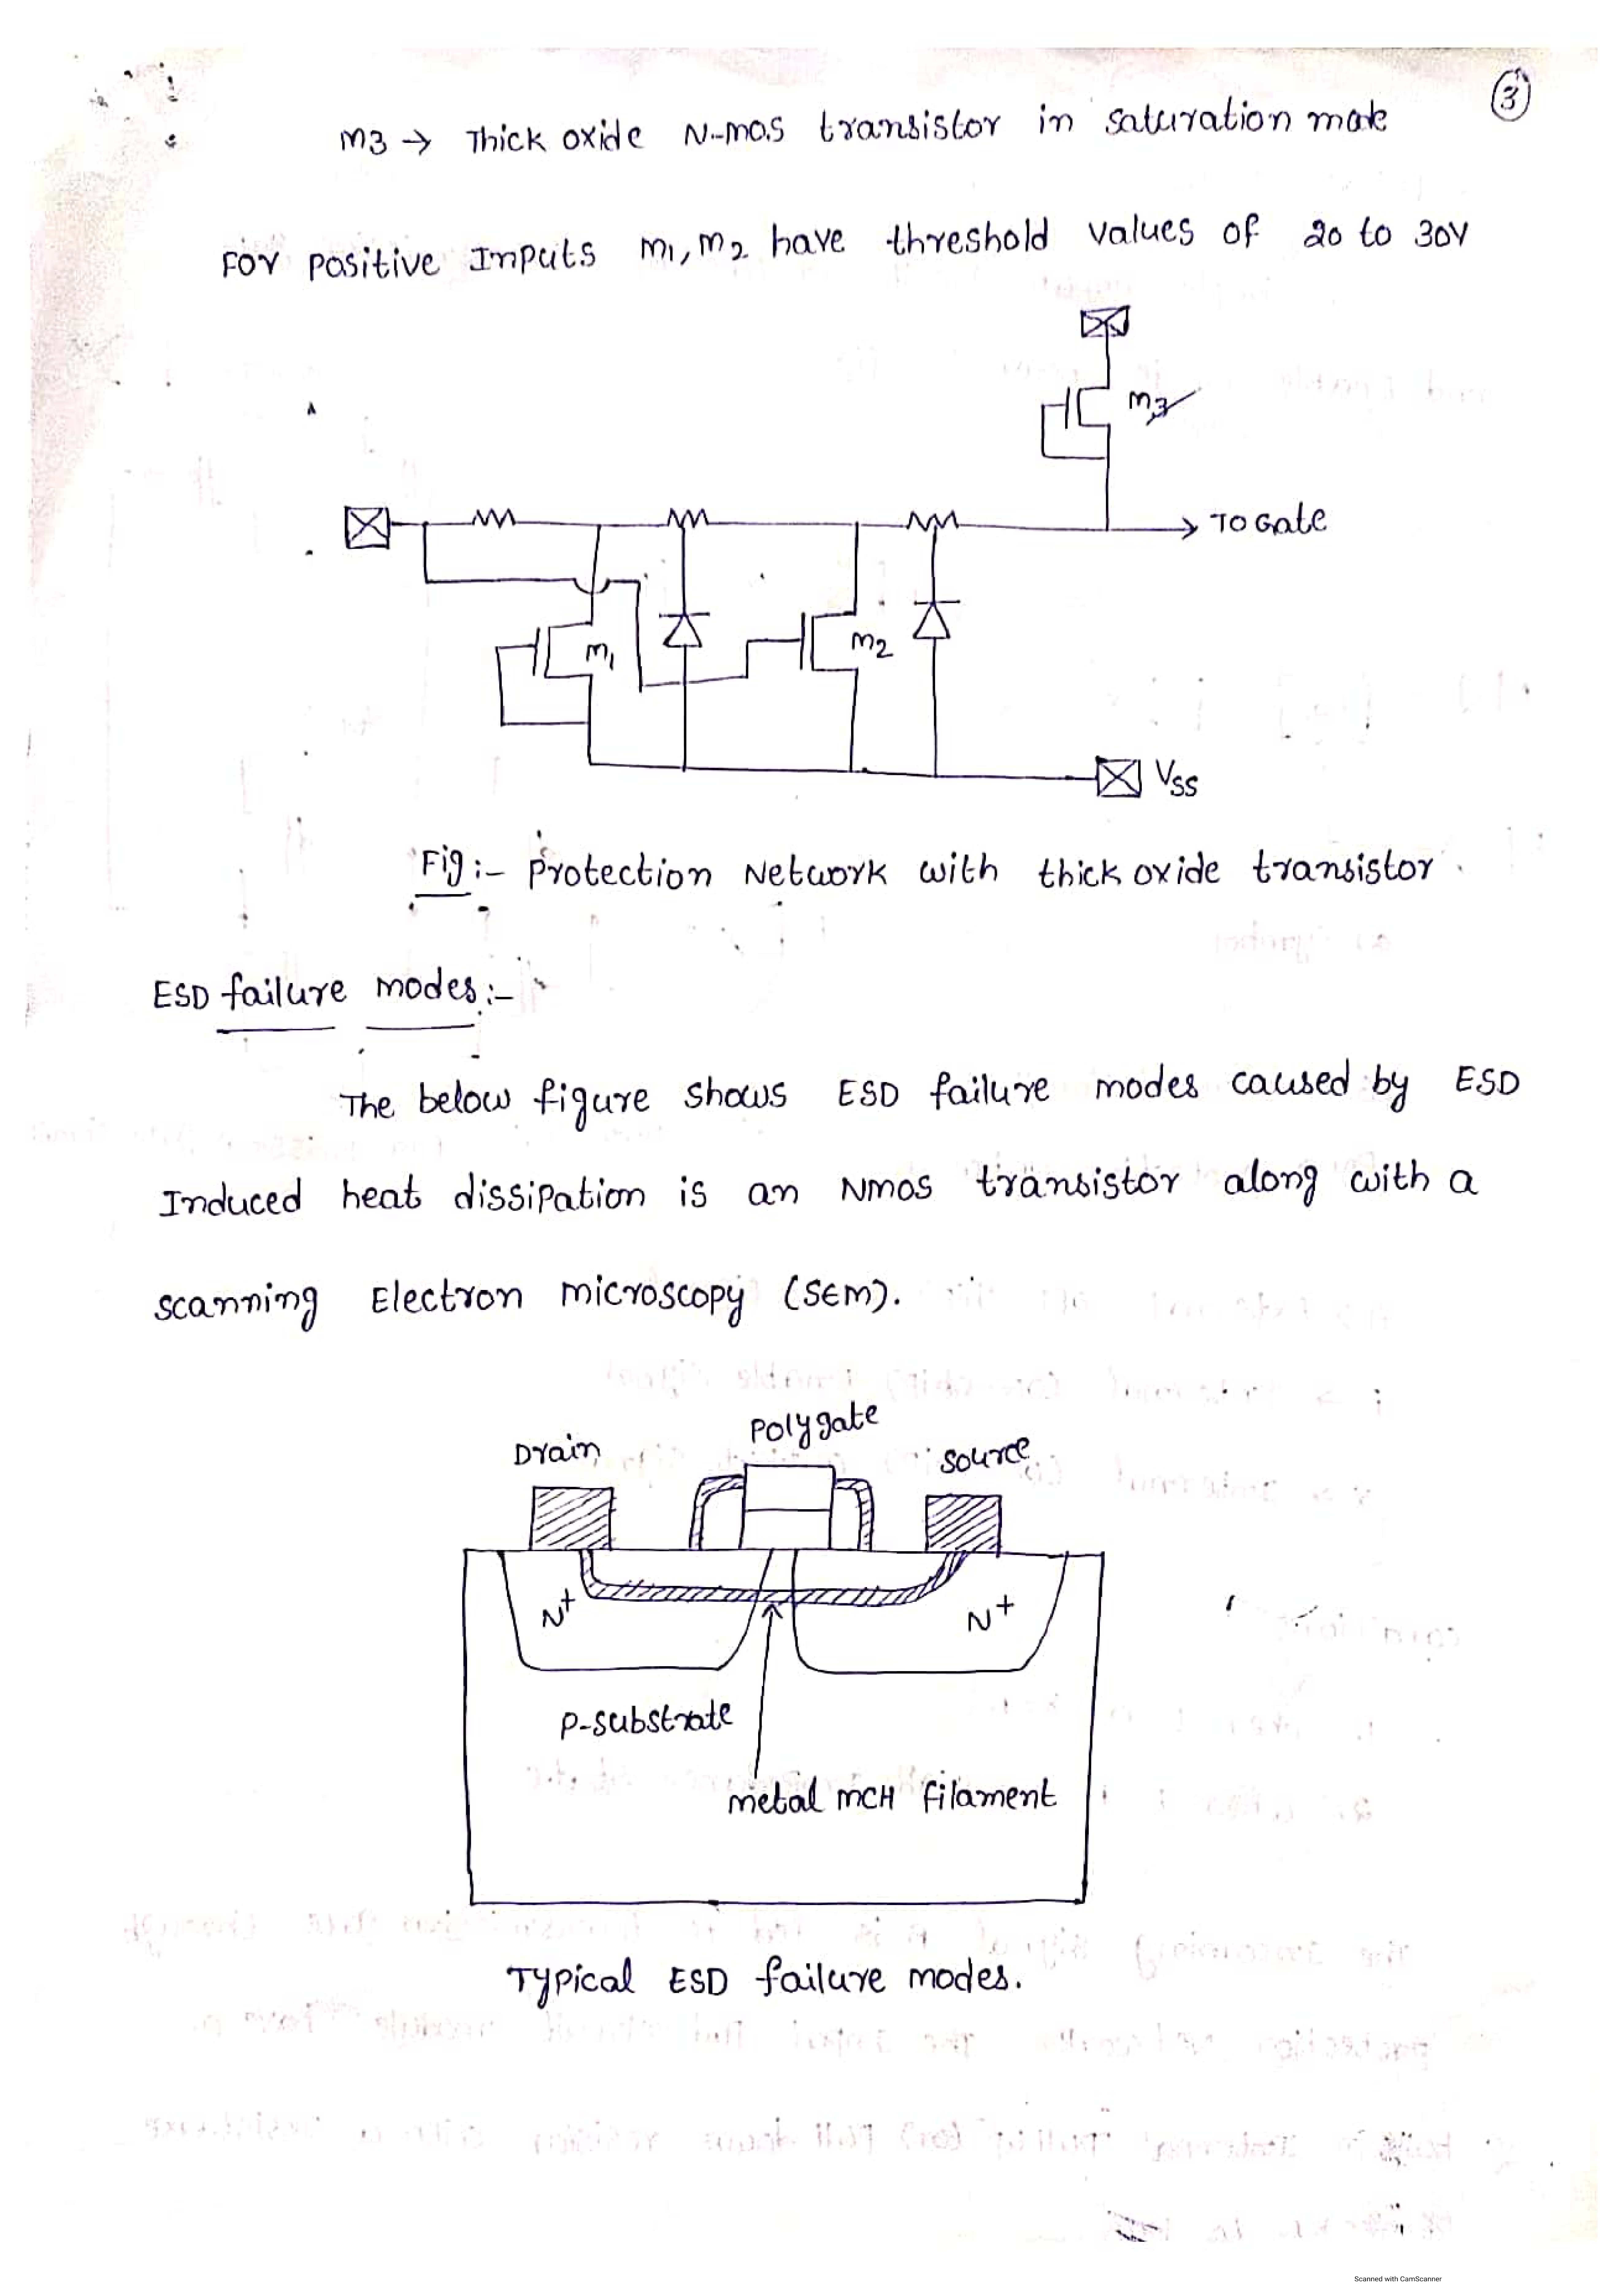 3
M3 → Thick oxide N-mos transistor in saturation mode
For Positive Inputs M1, M2 have threshold values of 20 to 30V
M3
To Gate
M1
M2
Vss
Fig:- Protection Network with thick oxide transistor.
ESD failure modes:-
The below figure shows ESD failure modes caused by ESD
Induced heat dissipation is an NMOS transistor along with a
scanning Electron microscopy (SEM).
Polygate
Drain
source
N+
N+
P-substrate
metal MCH filament
Typical ESD failure modes.
Scanned with CamScanner